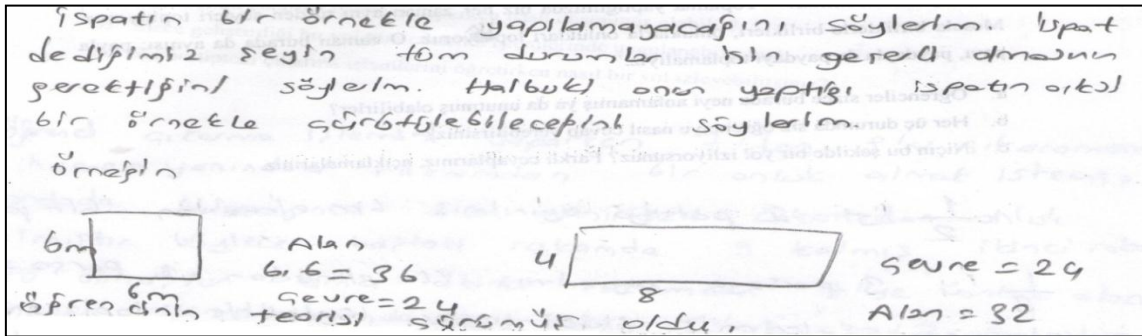 ispatın bir örnekle yapılamayacağını söylerim. İspat
dediğimiz şeyin tüm durumlar için genel olmasının
gerektiğini söylerim. Halbuki onun yaptığı ispatın aksi
bir örnekle çürütülebileceğini söylerim.
Örneğin
6m
6m
Alan
6.6 = 36
Çevre = 24
4
8
Çevre = 24
Alan = 32
öğrencinin teorisi çürütülmüş oldu